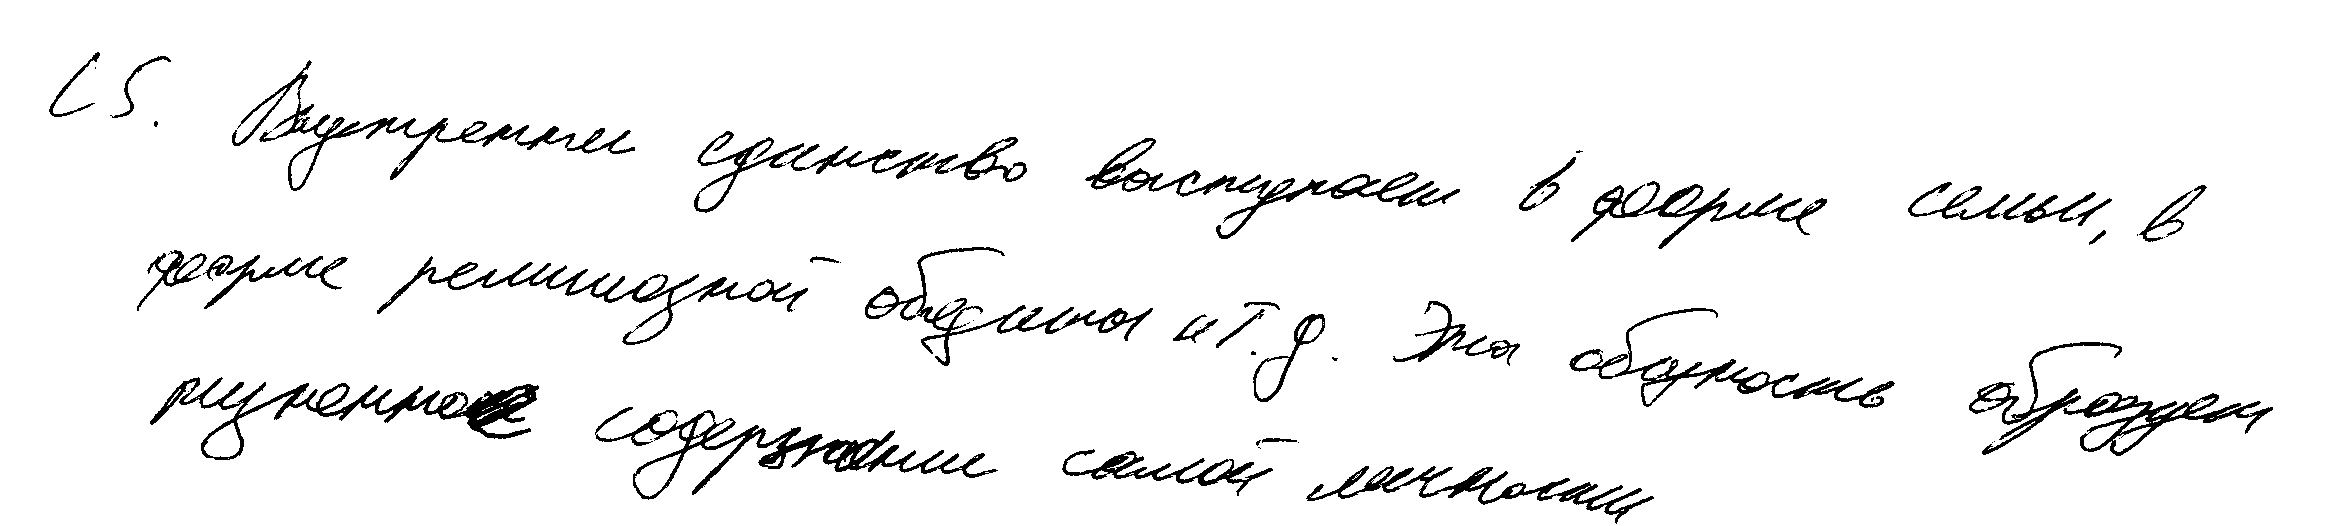 L5. Внутреннее единство выступает в форме семьи, в
форме религиозной общины и т.д. Эта общность образует
жизненное содержание самой личности